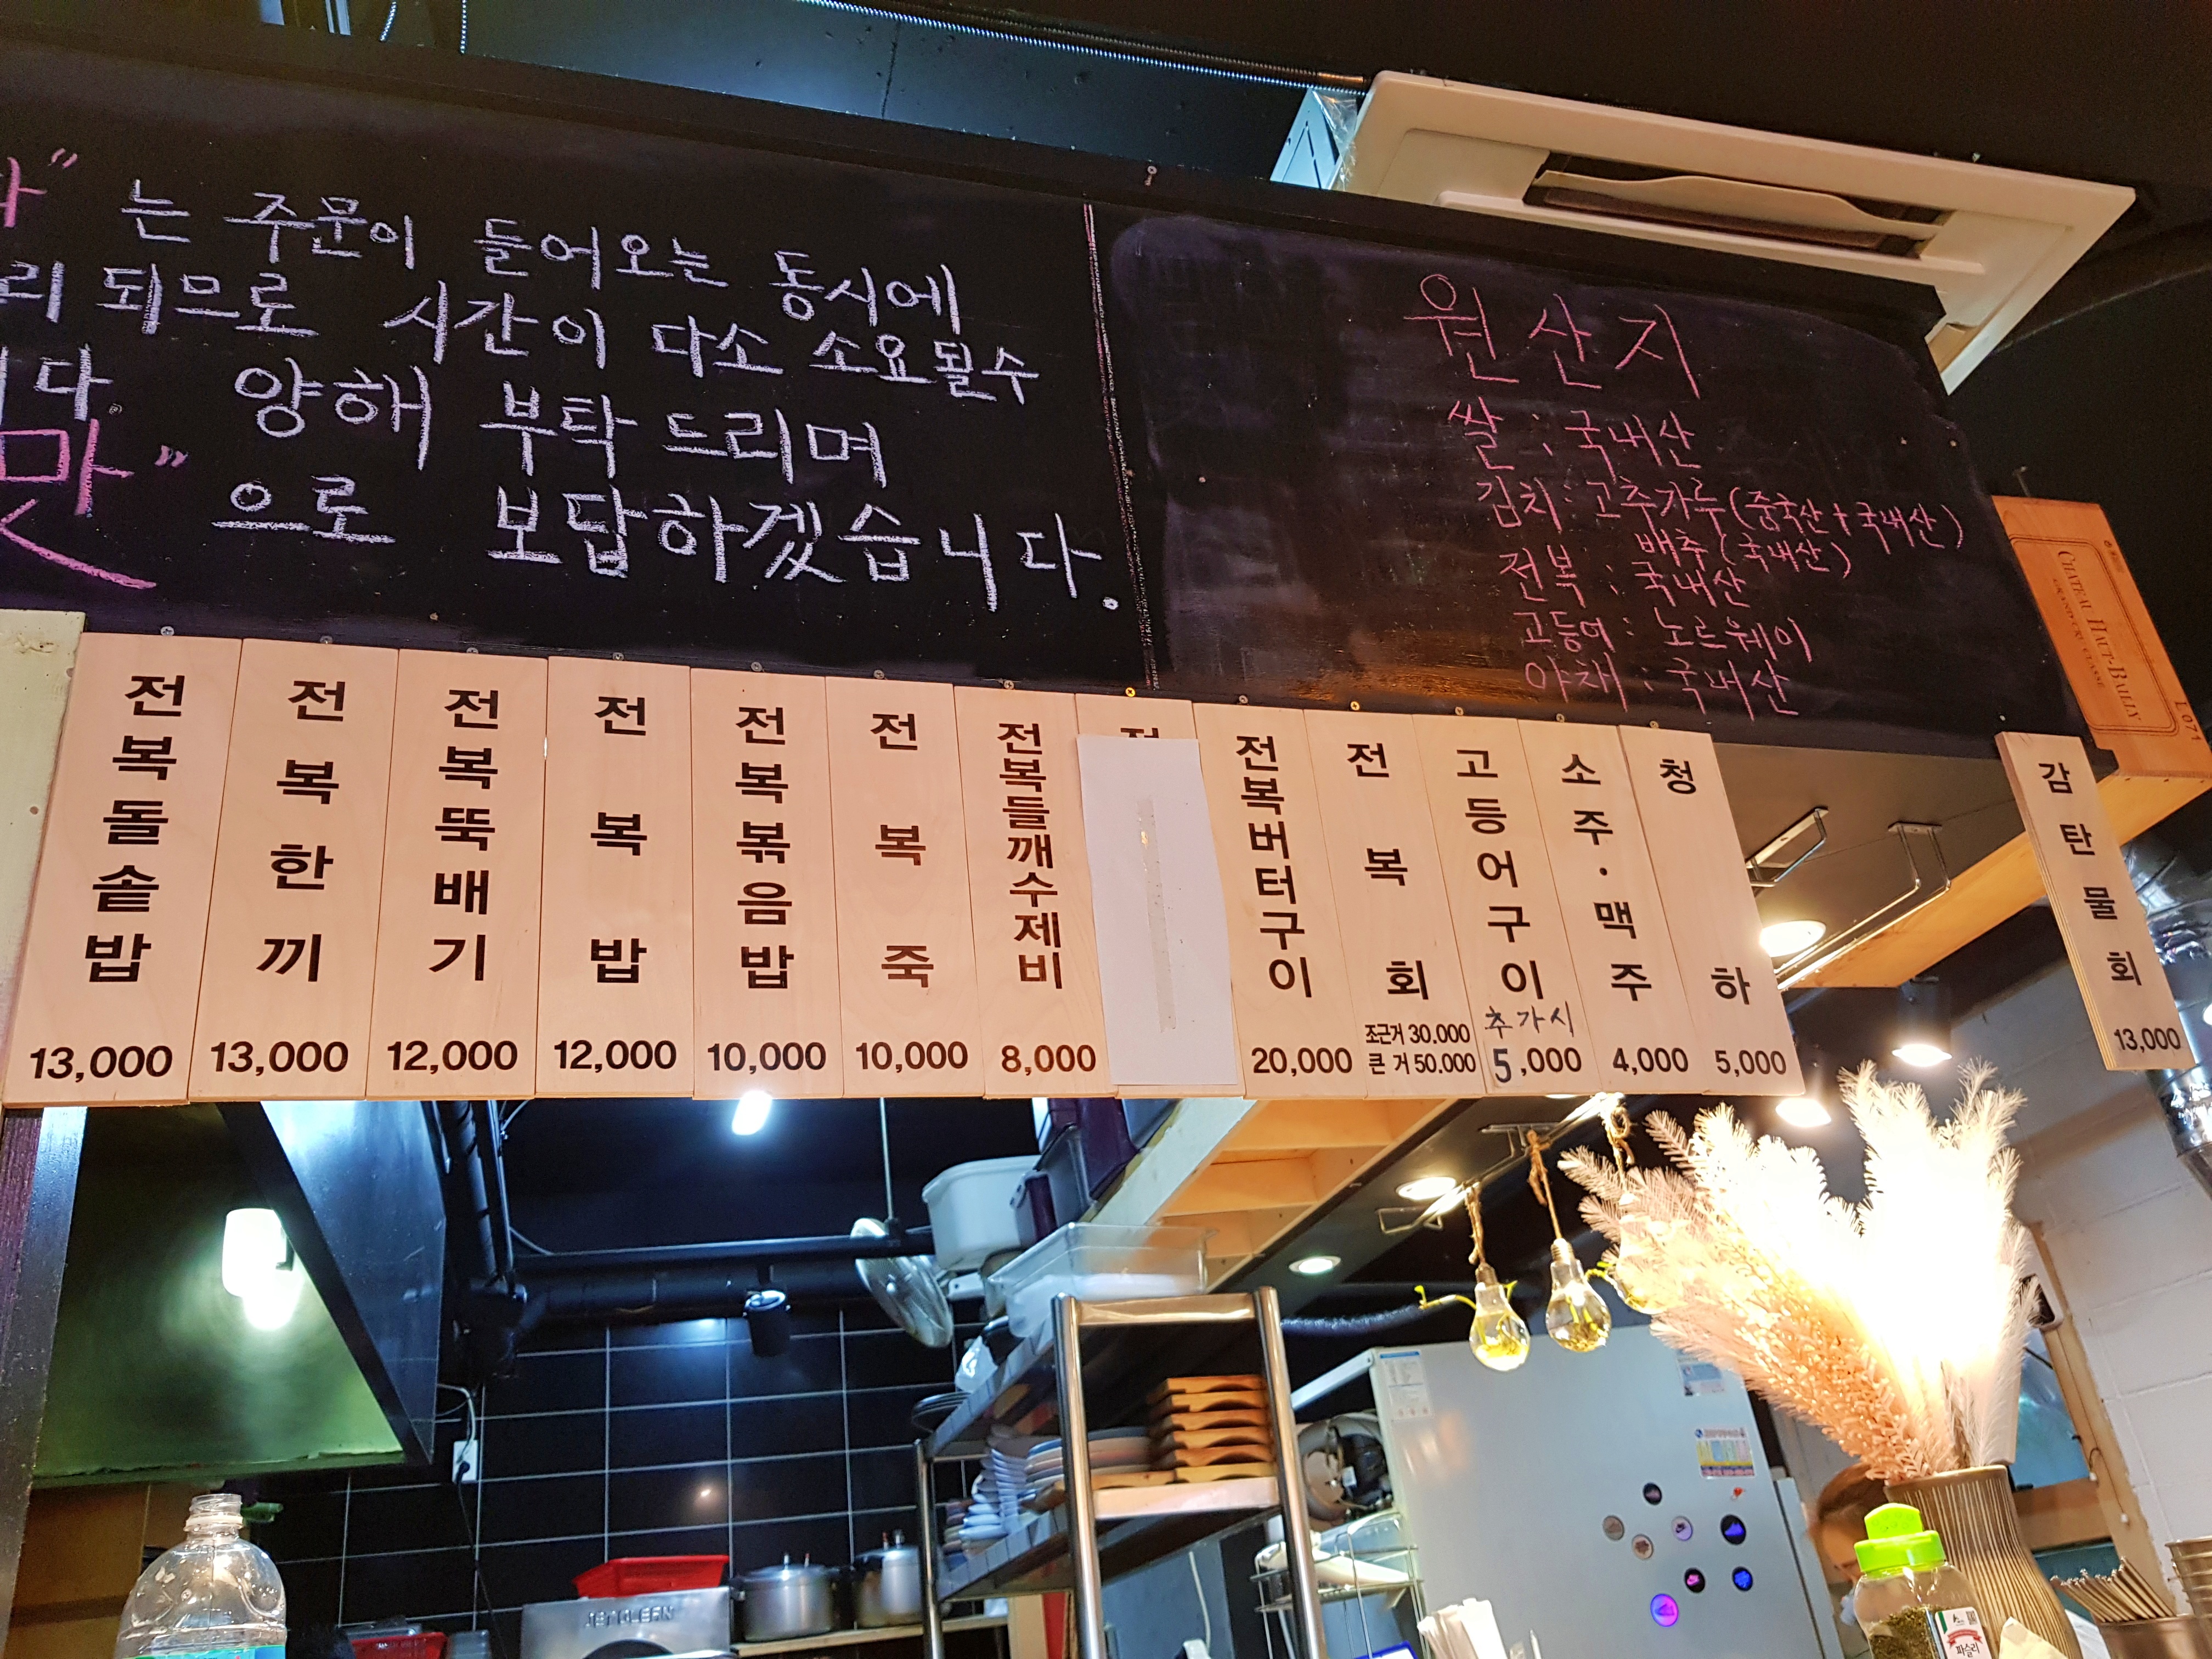 " 는 주문이 들어오는 동시에
리 되므로 시간이 다소 소요될수
니다. 양해 부탁 드리며
맛" 으로 보답하겠습니다.
원산지
쌀 : 국내산
김치 : 고추가루 (중국산 + 국내산)
배추 (국내산)
전복 : 국내산
고등어 : 노르웨이
야채 : 국내산
CHATEAU HAUT-BAILLY
GRAND CRU CLASSÉ
L 071
전복돌솥밥
13,000
전복한끼
13,000
전복뚝배기
12,000
전복밥
12,000
전복볶음밥
10,000
전복죽
10,000
전복들깨수제비
8,000
전복버터구이
20,000
전복회
조근거 30.000
큰 거 50.000
고등어구이
추가시
5,000
소주·맥주
4,000
청하
5,000
감탄물회
13,000
JET CLEAN
파슬리